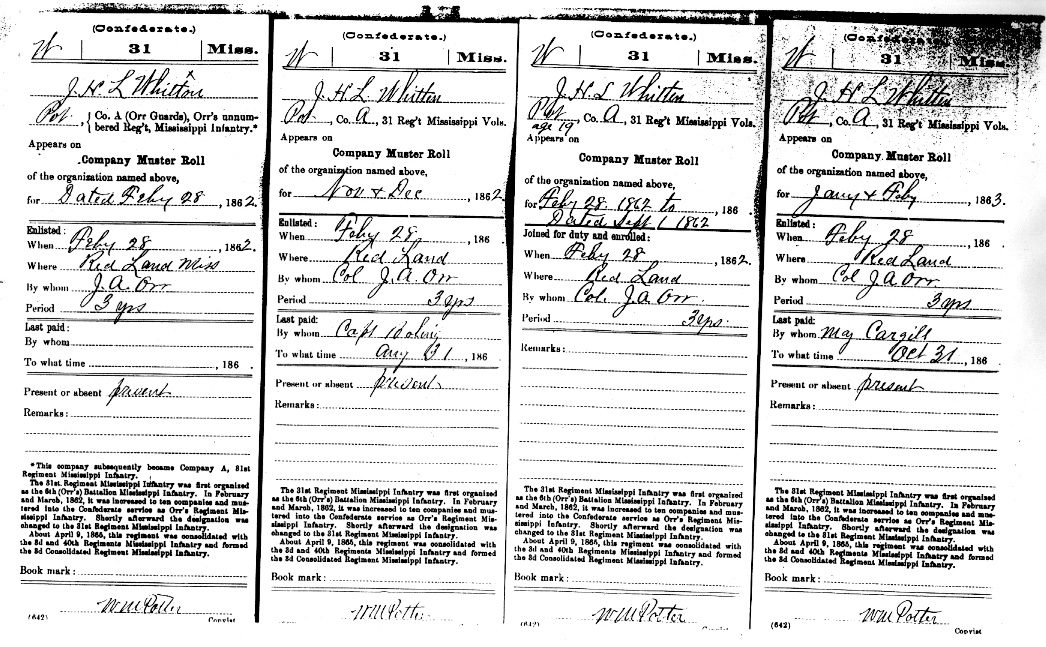 (Confederate.)
W | 31 | Miss.
J. H. L Whitton
Pvt, Co. A (Orr Guards), Orr's unnum-
bered Reg't, Mississippi Infantry.*
Appears on
Company Muster Roll
of the organization named above,
for Dated Feby 28, 1862.
Enlisted:
When Feby 28, 1862.
Where Red Land Miss
By whom J. A. Orr
Period 3 yrs
Last paid:
By whom
To what time , 186 .
Present or absent present
Remarks:
*This company subsequently became Company A, 31st
Regiment Mississippi Infantry.
The 31st Regiment Mississippi Infantry was first organized
as the 6th (Orr's) Battalion Mississippi Infantry. In February
and March, 1862, it was increased to ten companies and mus-
tered into the Confederate service as Orr's Regiment Mis-
sissippi Infantry. Shortly afterward the designation was
changed to the 31st Regiment Mississippi Infantry.
About April 9, 1865, this regiment was consolidated with
the 3d and 40th Regiments Mississippi Infantry and formed
the 3d Consolidated Regiment Mississippi Infantry.
Book mark:
Wm Potter
(642) Copyist
(Confederate.)
W | 31 | Miss.
J. H. L Whitten
Pvt, Co. A, 31 Reg't Mississippi Vols.
Appears on
Company Muster Roll
of the organization named above,
for Nov & Dec, 1862.
Enlisted:
When Feby 28, 186 .
Where Red Land
By whom Col J. A. Orr
Period 3 yrs
Last paid:
By whom Capt
To what time 31, 186
Present or absent present
Remarks:
The 31st Regiment Mississippi Infantry was first organized
as the 6th (Orr's) Battalion Mississippi Infantry. In February
and March, 1862, it was increased to ten companies and mus-
tered into the Confederate service as Orr's Regiment Mis-
sissippi Infantry. Shortly afterward the designation was
changed to the 31st Regiment Mississippi Infantry.
About April 9, 1865, this regiment was consolidated with
the 3d and 40th Regiments Mississippi Infantry and formed
the 3d Consolidated Regiment Mississippi Infantry.
Book mark:
Wm Potter
(Confederate.)
W | 31 | Miss.
J. H. L Whitten
Pvt, Co. A, 31 Reg't Mississippi Vols.
age 19
Appears on
Company Muster Roll
of the organization named above,
for Feby 28 1862 to , 186 .
Dated Sept 1 1862
Joined for duty and enrolled:
When Feby 28, 1862.
Where Red Land
By whom Col. J. A. Orr.
Period 3 yrs.
Remarks:
The 31st Regiment Mississippi Infantry was first organized
as the 6th (Orr's) Battalion Mississippi Infantry. In February
and March, 1862, it was increased to ten companies and mus-
tered into the Confederate service as Orr's Regiment Mis-
sissippi Infantry. Shortly afterward the designation was
changed to the 31st Regiment Mississippi Infantry.
About April 9, 1865, this regiment was consolidated with
the 3d and 40th Regiments Mississippi Infantry and formed
the 3d Consolidated Regiment Mississippi Infantry.
Book mark:
Wm Potter
(642)
(Confederate.)
W | 31 | Miss.
J. H. L Whitten
Pvt, Co. A, 31 Reg't Mississippi Vols.
Appears on
Company Muster Roll
of the organization named above,
for Jany & Feby, 1863.
Enlisted:
When Feby 28, 186 .
Where Red Land
By whom Col J A Orr
Period 3 yrs
Last paid:
By whom Maj Cargill
To what time Oct 31, 186 .
Present or absent present
Remarks:
The 31st Regiment Mississippi Infantry was first organized
as the 6th (Orr's) Battalion Mississippi Infantry. In February
and March, 1862, it was increased to ten companies and mus-
tered into the Confederate service as Orr's Regiment Mis-
sissippi Infantry. Shortly afterward the designation was
changed to the 31st Regiment Mississippi Infantry.
About April 9, 1865, this regiment was consolidated with
the 3d and 40th Regiments Mississippi Infantry and formed
the 3d Consolidated Regiment Mississippi Infantry.
Book mark:
Wm Potter
(642) Copyist